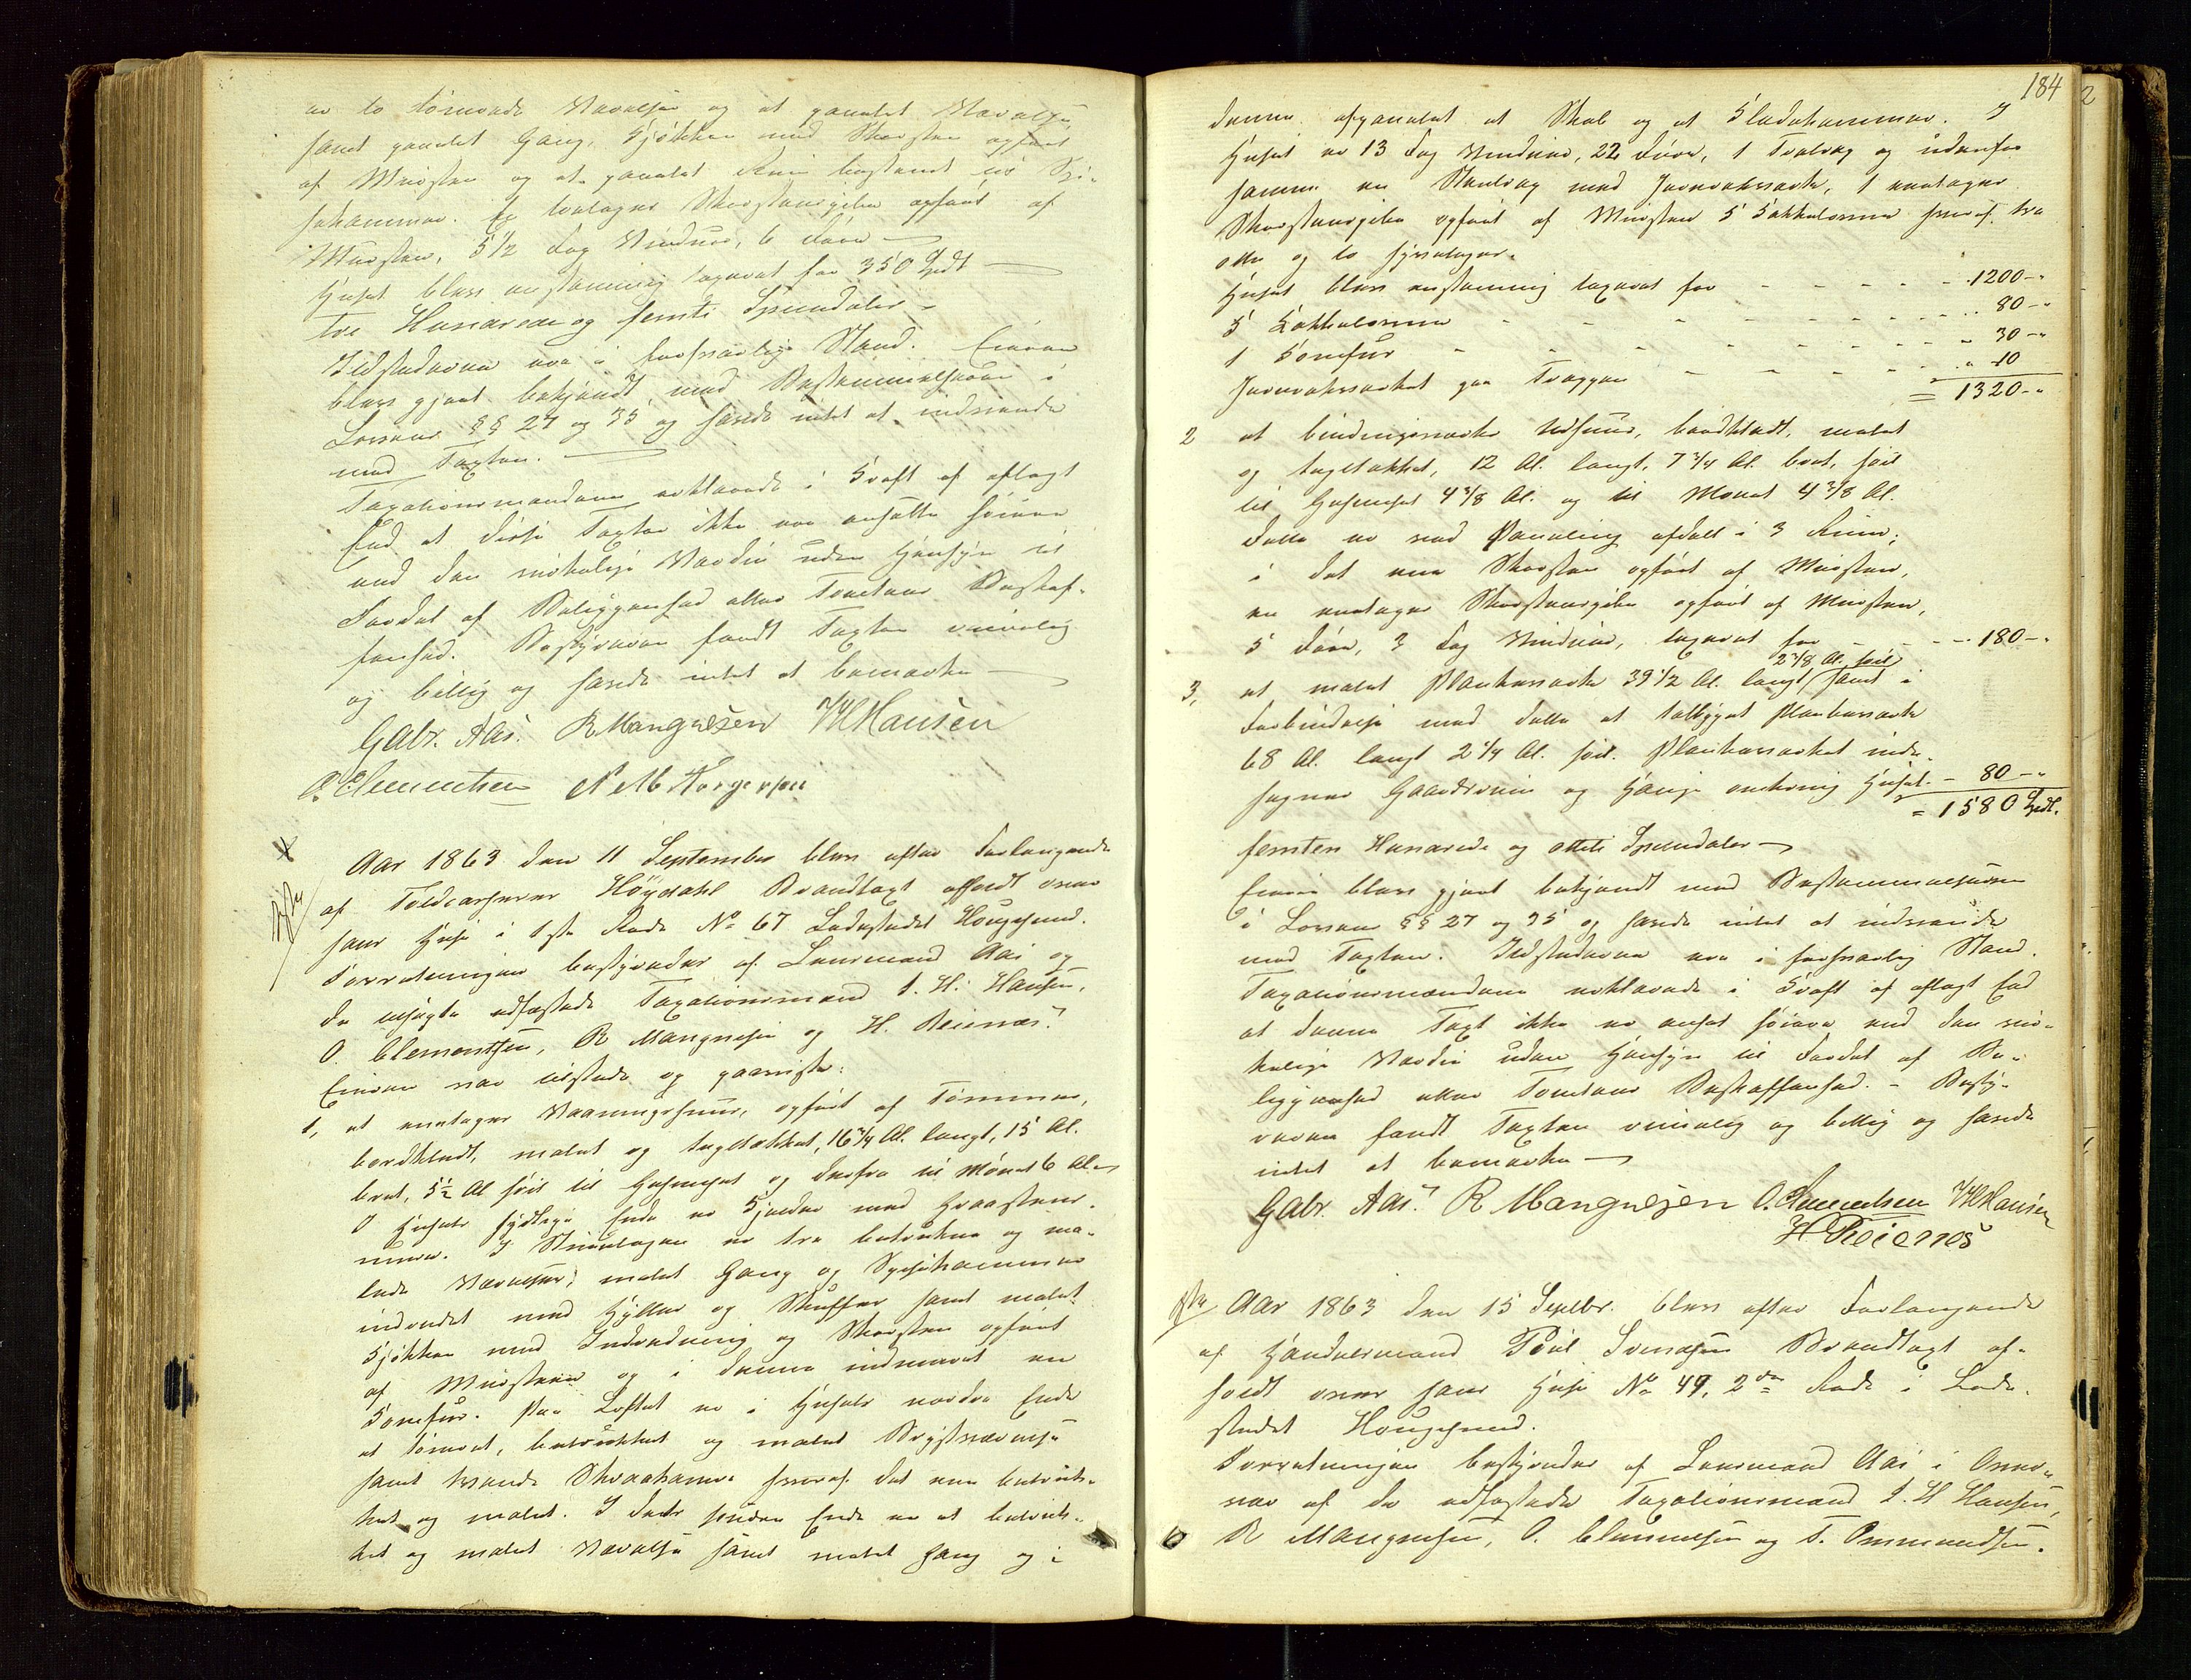 er to tømrede Værelser og et panelet Værelse,
samt panelet Gang, Kjøkken med Skorsten opført
af Mursten og et panelet Rum bestemt til Spi-
sekammer. En toetages Skorstenspibe opført af
Mursten, 5 1/2 Fag Vinduer, 6 Døre
Huset blev enstemmig taxeret for 350 Spdl
Tre Hundrede og femti Speciedaler
Ildstederne ere i forsvarlig Stand. Eieren
blev gjort bekjendt med Bestemmelserne i
Lovens §§ 27 og 35 og havde intet at indvende
mod Taxten.
Taxationsmændene erklærede i Kraft af aflagt
Eed at disse Taxter ikke ere ansatte høiere
end den virkelige Værdie uden Hensyn til
Fordel af Beliggenhed eller Tomtens Beskaf-
fenhed. Bestyreren fandt Taxten rimelig
og billig og havde intet at bemærke
Gabr. Aas. R Mangnesen I H Hansen
O. Clementsen N M Torgersen
Aar 1863 den 11 September blev efter Forlangende
af Toldcasserer Høydahl Brandtaxt afholdt over
hans Huse i 1ste Rode No 67 Ladestedet Hougesund.
Forretningen bestyredes af Lensmand Aas og
de ensigte edfæstede Taxationsmænd I. H. Hansen,
O. Clementsen, R Mangnesen og H. Reienæs.
Eieren var tilstede og paaviste:
1, et enetages Vaaningshuus, opført af Tømmer,
bordklædt, malet og tagtækket, 16 3/4 Al. langt, 15 Al.
bred, 5 1/2 Al høit til Gesimset og derfra til Mønet 6 Alen
I Husets sydlige Ende er Kjelder med Graasteens-
muur. I Stueetagen er tre betrukne og ma-
lede Værelser, malet Gang og Spisekammer
indredet med Hylder og Skuffer samt malet
Kjøkken med Indredning og Skorsten opført
af Mursten og i denne indmuret en
Komfur. Paa Loftet er i Husets nordre Ende
et tømret, betrukket og malet Qvistværelse
samt tvende Skraakamre hvoraf det ene betruk-
ket og malet. I dets søndre Ende er et betruk-
ket og malet Værelse samt malet Gang og i
184
denne afpanelet et Skab og et Klædekammer. I
Huset er 13 Fag Vinduer, 22 Døre, 1 Trætrap og udenfor
samme en Steentrap med Jernrækværk, 1 enetages
Skorstenspibe opført af Mursten 5 Kakkelovne hvoraf tre
otte og to fyretages.
Huset blev enstemmig taxeret for - - - - - 1200 -"
5 Kakkelovne - - - - - - - 80 -"
1 Komfur - - - - - - - " 30 -"
Jernrækværket paa Trappen - - - - - " 10
= 1320 -"
2 et bindingsværks Udhuus, bordklædt, malet
og tagtækket, 12 Al. langt, 7 3/4 Al. bret, høit
til Gesimset 4 3/8 Al. og til Mønet 4 3/8 Al.
Dette er ved Paneling afdelt i 3 Rum,
i det ene Skorsten opført af Mursten,
en enetages Skorstenspibe opført af Mursten,
5 Døre, 3 Fag Vinduer, taxeret for - - - - 180 -"
2 3/8 Al. høit
3, et malet Plankeværk 39 1/2 Al. langt, samt i
Forbindelse med dette et tættbygget Plankeværk
68 Al. langt 2 1/4 Al. høit. Plankeværket inde-
hegner Gaardsrum og Hauge omkring Huset. - 80 -"
= 1580 Spdl.
femten Hundrede og otteti Speciedaler
Eieren blev gjort bekjendt med Bestemmelserne
i Lovens §§ 27 og 35 og havde intet at indvende
mod Taxten. Ildstederne ere i forsvarlig Stand.
Taxationsmændene erklærede i Kraft af aflagt Eed
at denne Taxt ikke er ansat høiere end den vir-
kelige Værdie uden Hensyn til Fordel af Be-
liggenhed eller Tomtens Beskaffenhed. - Besty-
reren fandt Taxten rimelig og billig og havde
intet at bemærke
Gabr. Aas. R Mangnesen O. Clementsen I H Hansen
H Reienes
Aar 1863 den 15 Septbr. blev efter Forlangende
af Handelsmand Poul Svendsen Brandtaxt af-
holdt over hans Huse No 49, 2den Rode i Lade-
stedet Hougesund.
Forretningen bestyredes af Lensmand Aas i Over-
vær af de edfæstede Taxationsmænd I. H Hansen,
R Mangnesen, O. Clementsen og T. Ommundsen.